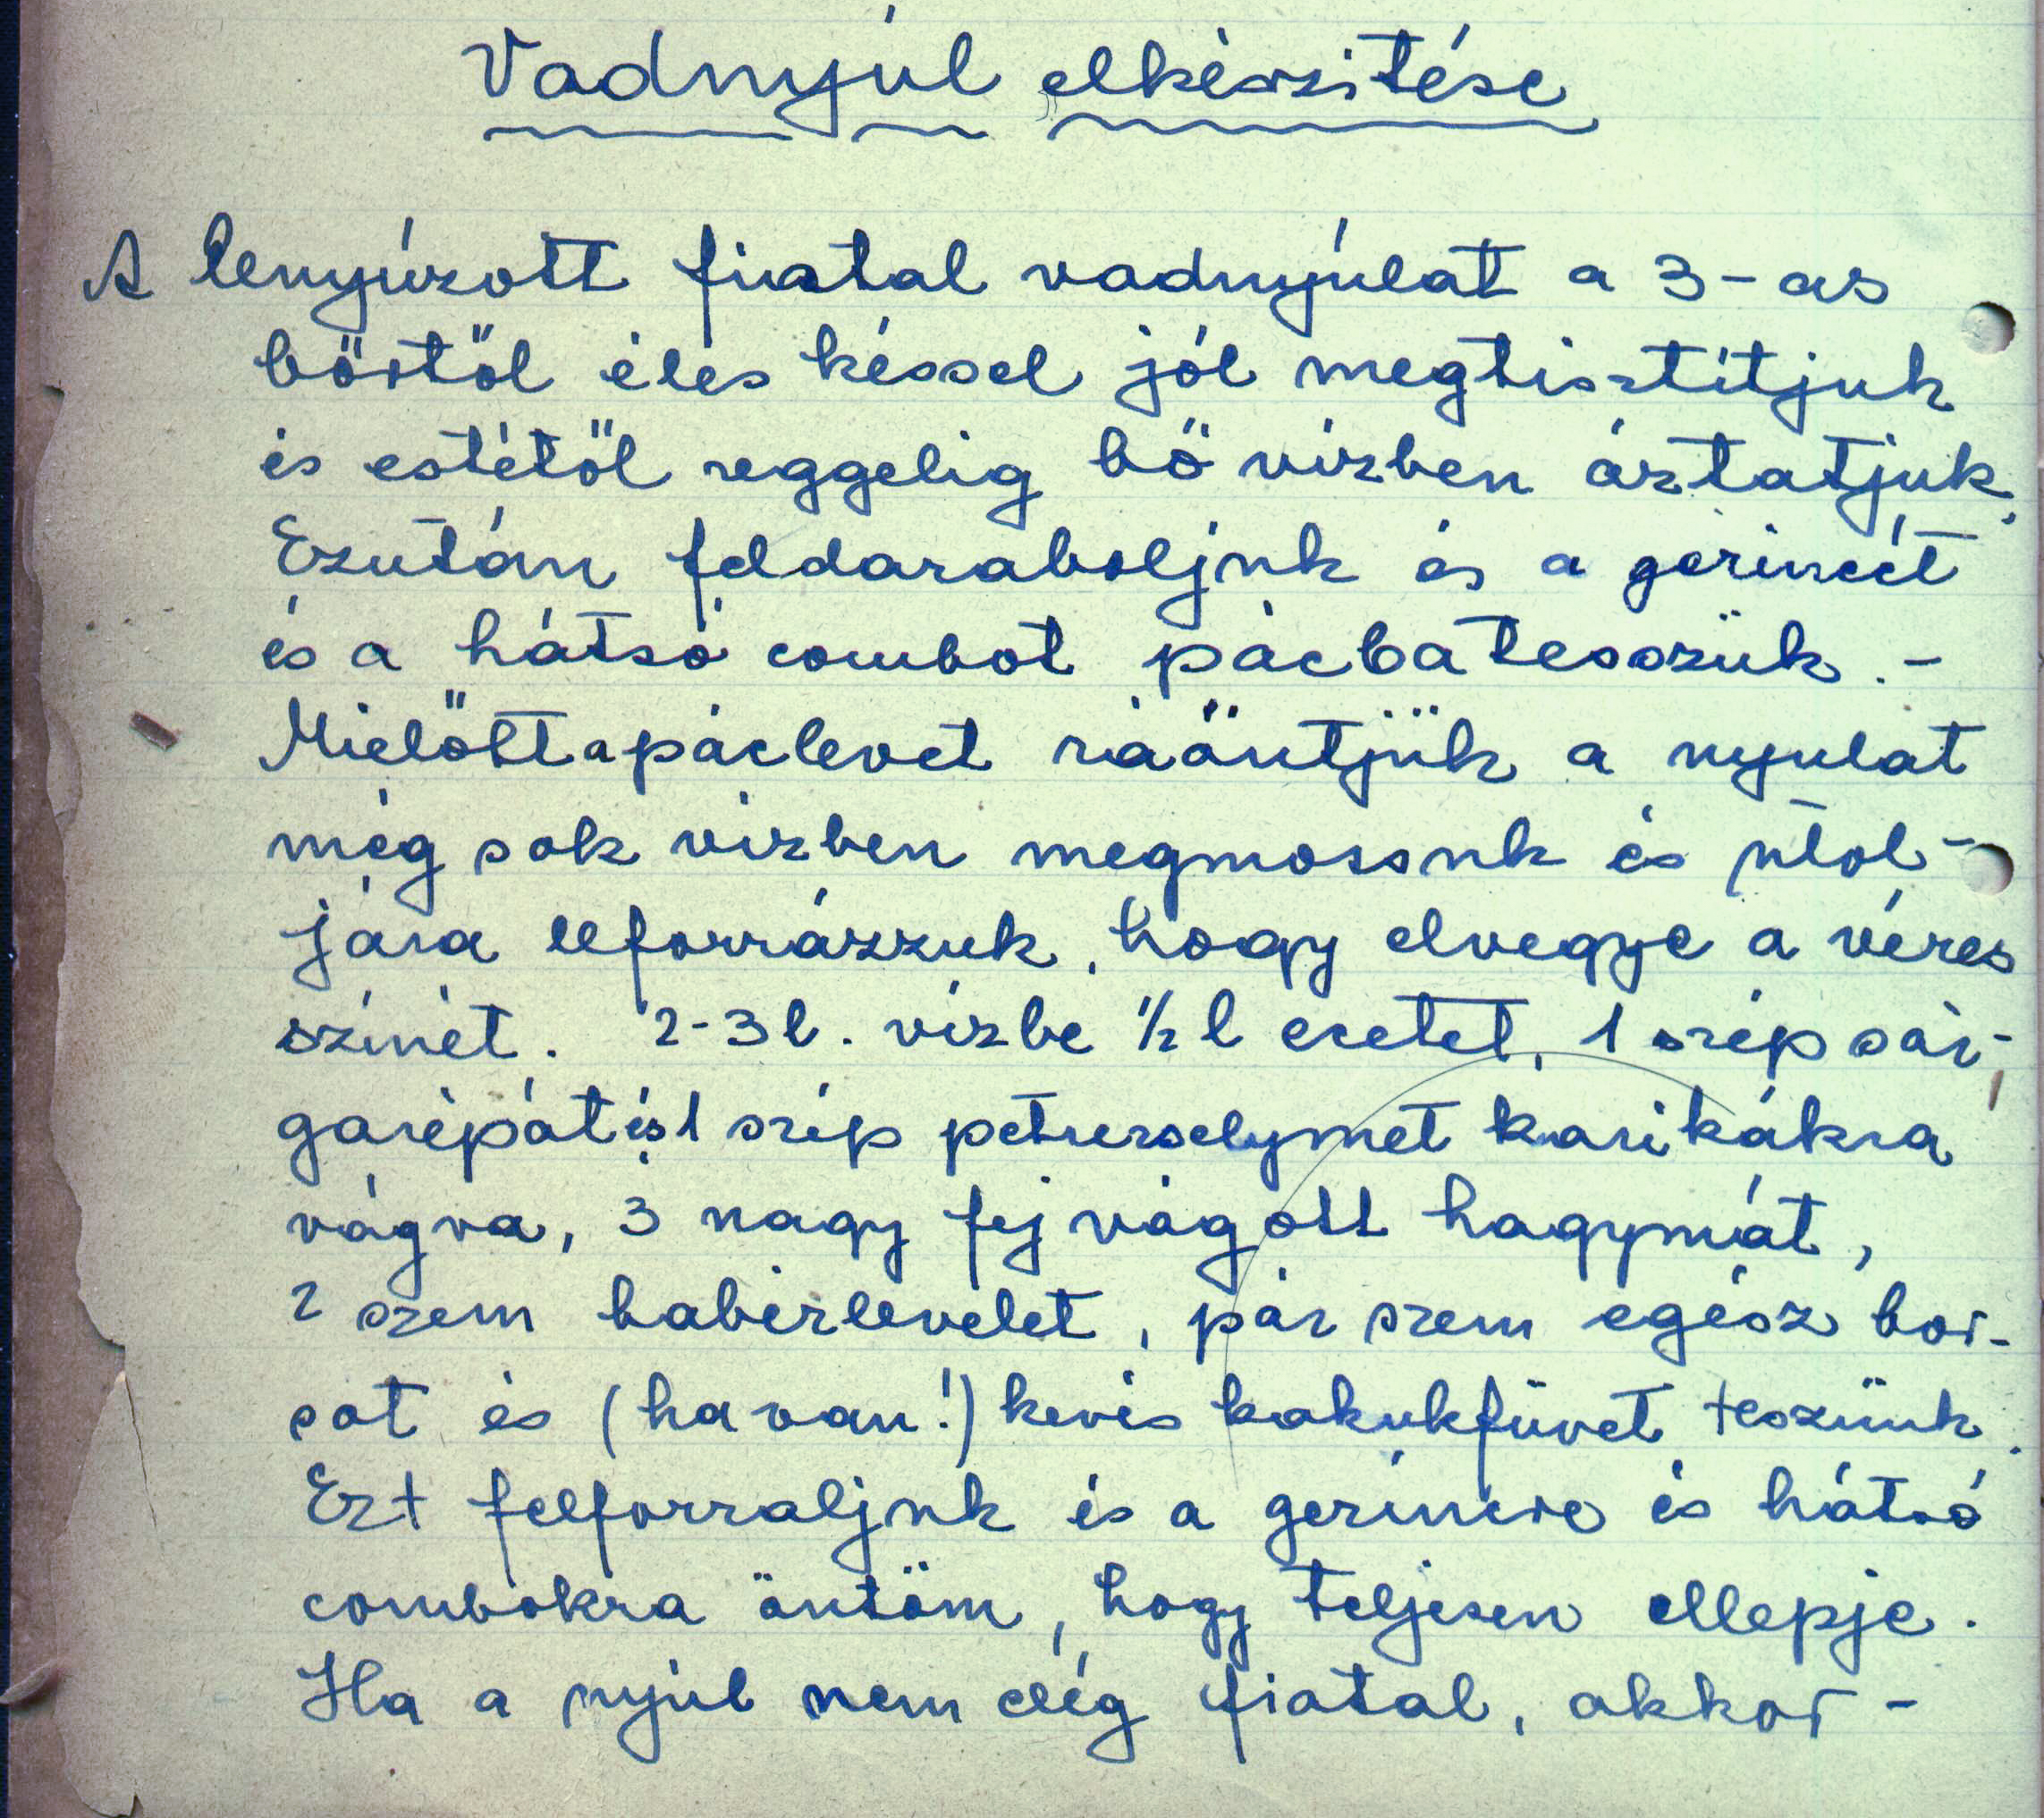 Vadnyúl elkészitése
A lenyúzott fiatal vadnyúlat a 3-as
bőrtől éles késsel jól megtisztítjuk
és estétől reggelig bő vizben áztatjuk.
Ezután feldaraboljuk és a gerincét
és a hátsó combot pácba tesszük. -
Mielőtt a páclevet ráöntjük a nyulat
még sok vizben megmossuk és utol-
jára leforrázzuk, hogy elvegye a véres
színét. 2-3 l. vízbe ½ l ecetet, 1 szép sár-
garépát és 1 szép petrezselymet karikákra
vágva, 3 nagy fej vágott hagymát,
2 szem babérlevelet, pár szem egész bor-
sot és (ha van!) kevés kakukfüvet teszünk.
Ezt felforraljuk és a gerincre és hátsó
combokra öntöm, hogy teljesen ellepje.
Ha a nyúl nem elég fiatal, akkor -